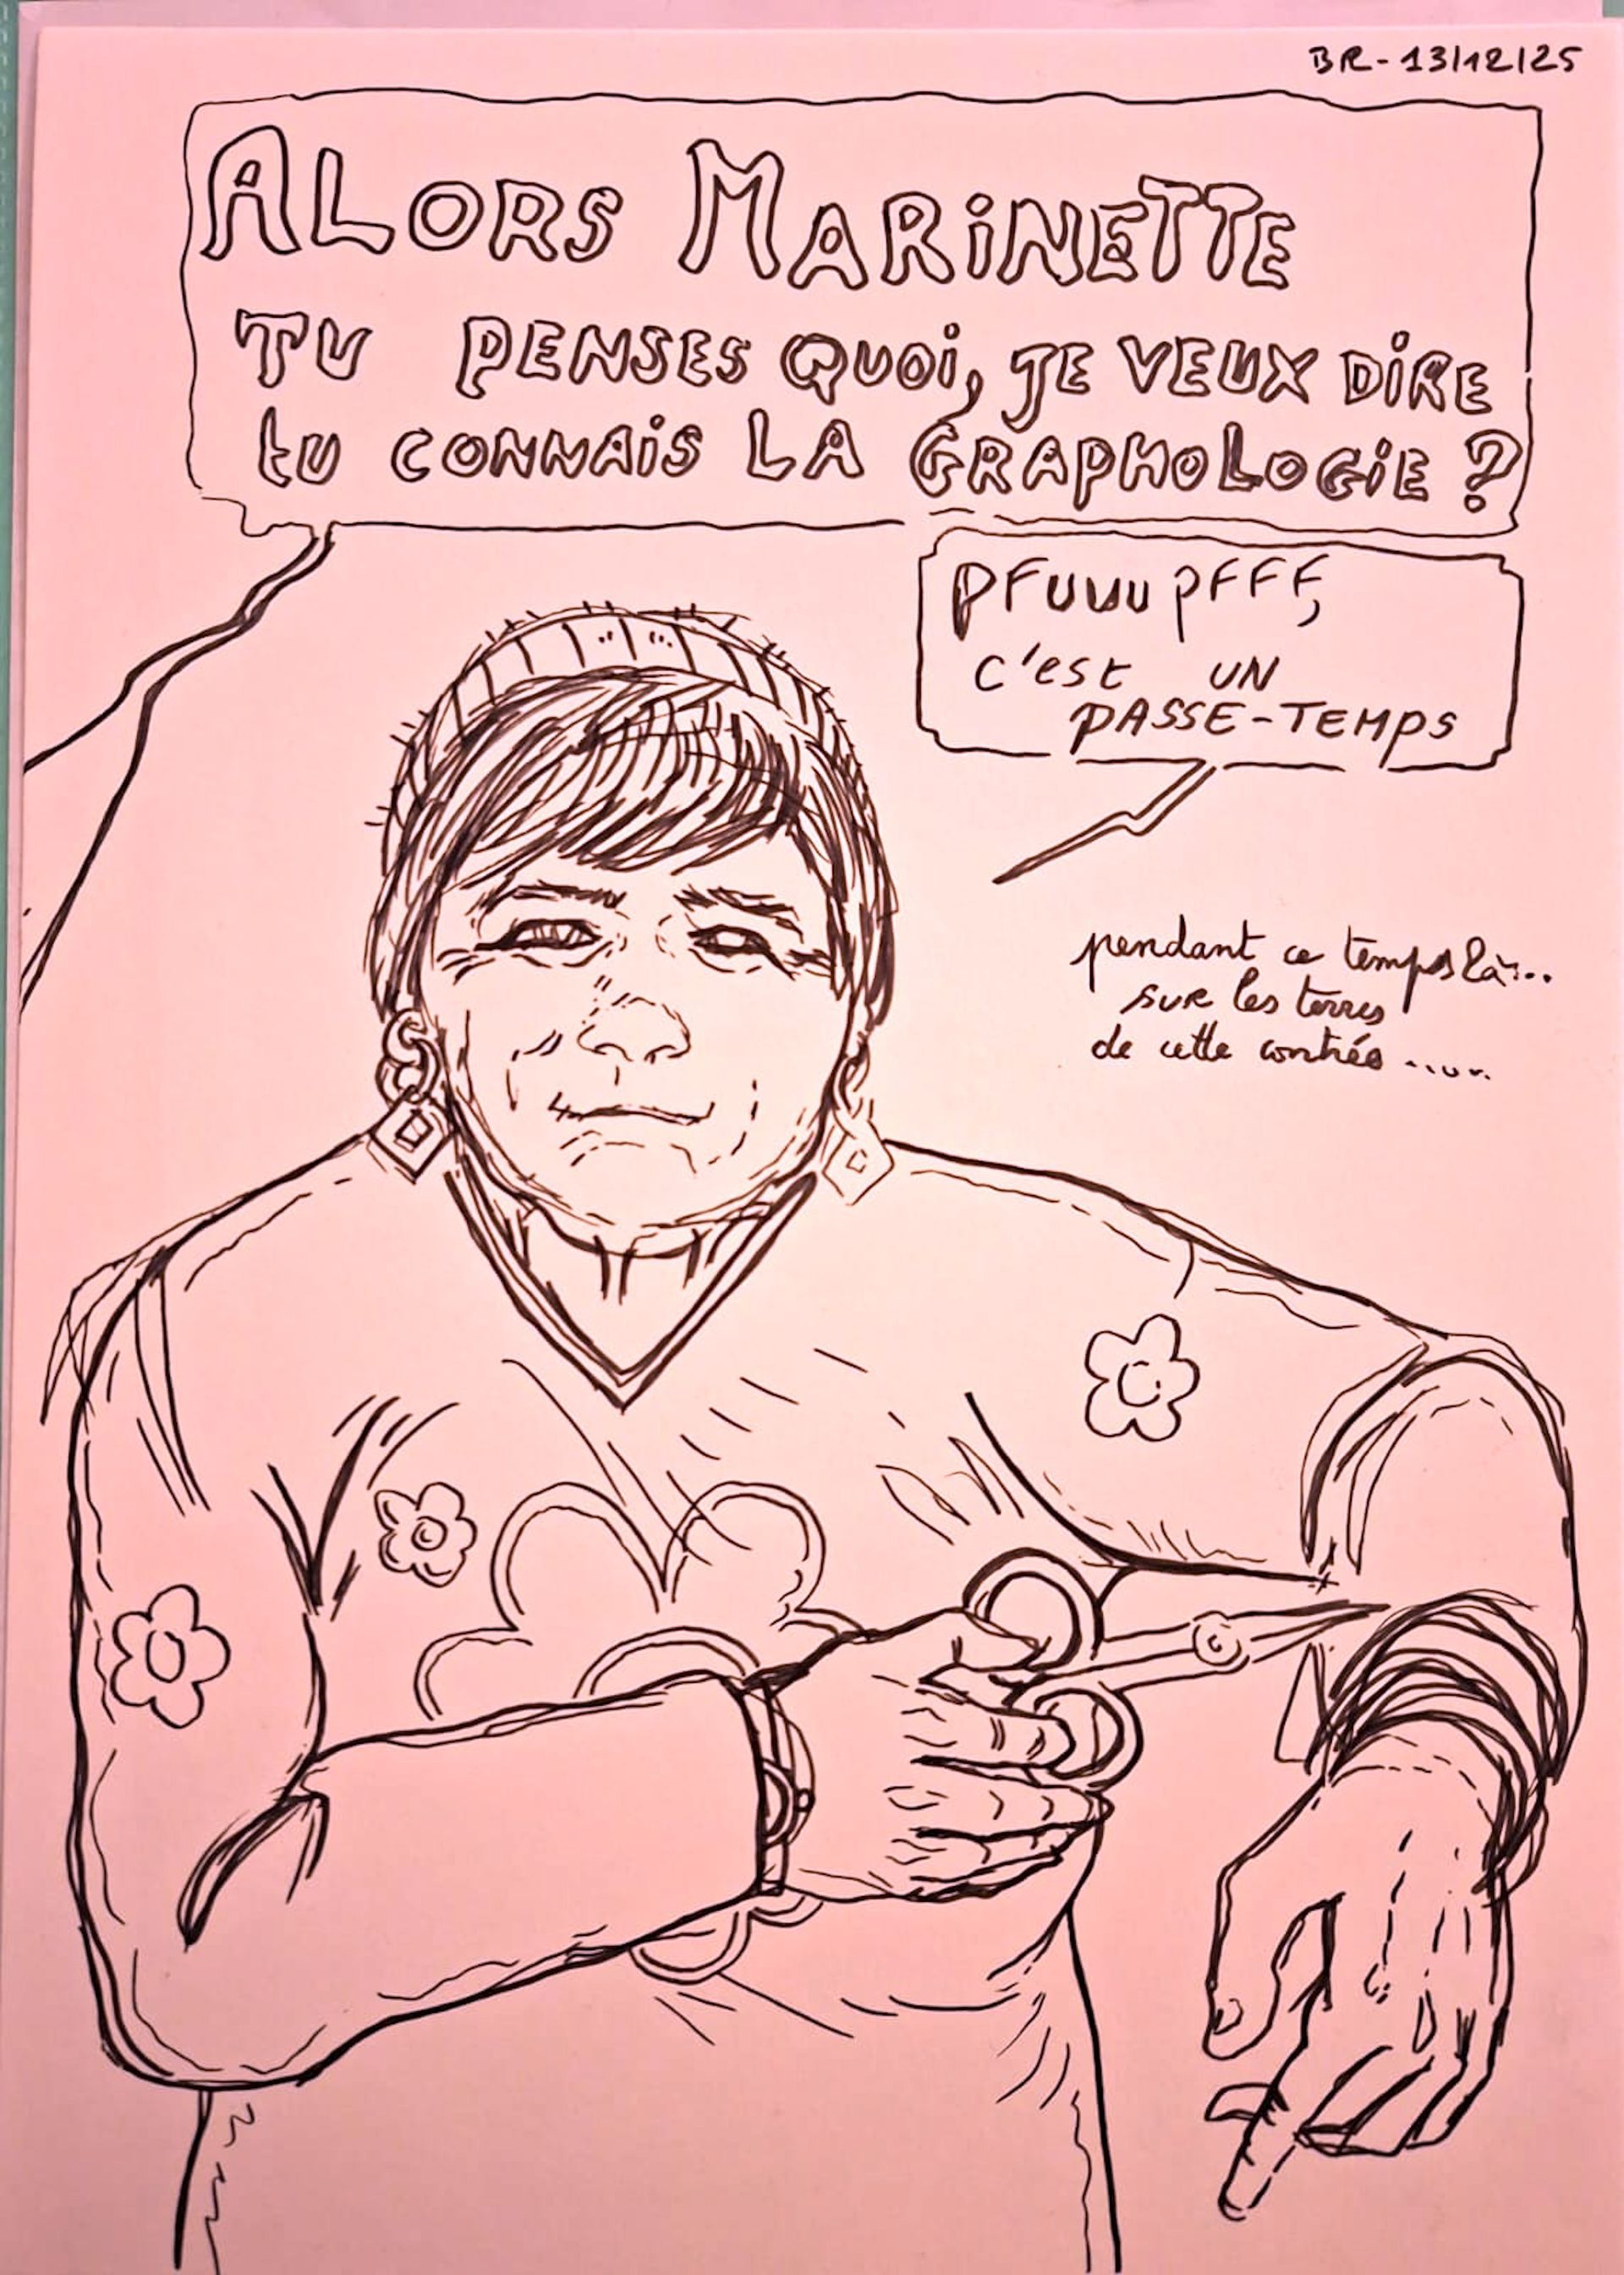 BR - 13/12/25
ALORS MARiNETTE
TU PENSES QUOi, JE VEUX DiRE
tU CONNAiS LA GRAPHOLOGiE ?
PFUUU PFFF,
C'est UN
PASSE-TEMPS
pendant ce temps là...
sur les terres
de cette contrée .....